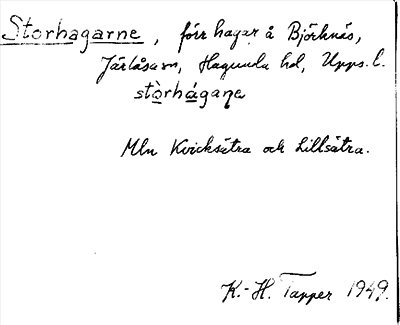 Storhagarne, förr hagar å Björknäs,
Järlåsa sn, Hagunda hd, Upps. l.
stòrhágaṇe
Mln Kvicksätra och Lillsätra.
K.-H. Tapper 1949.